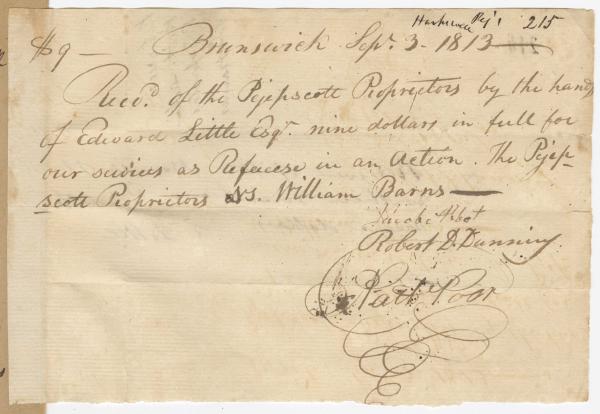 Pej. 215
$9 — Brunswick Sep.r 3 - 1813 —
Recd. of the Pejepscott Proprietors by the hands
of Edward Little Esqr. nine dollars in full for
our services as Referese in an Action. The Pejep-
scott Proprietors vs. William Barns —
Jacob Abbot
Robert D. Dunning
Patt.